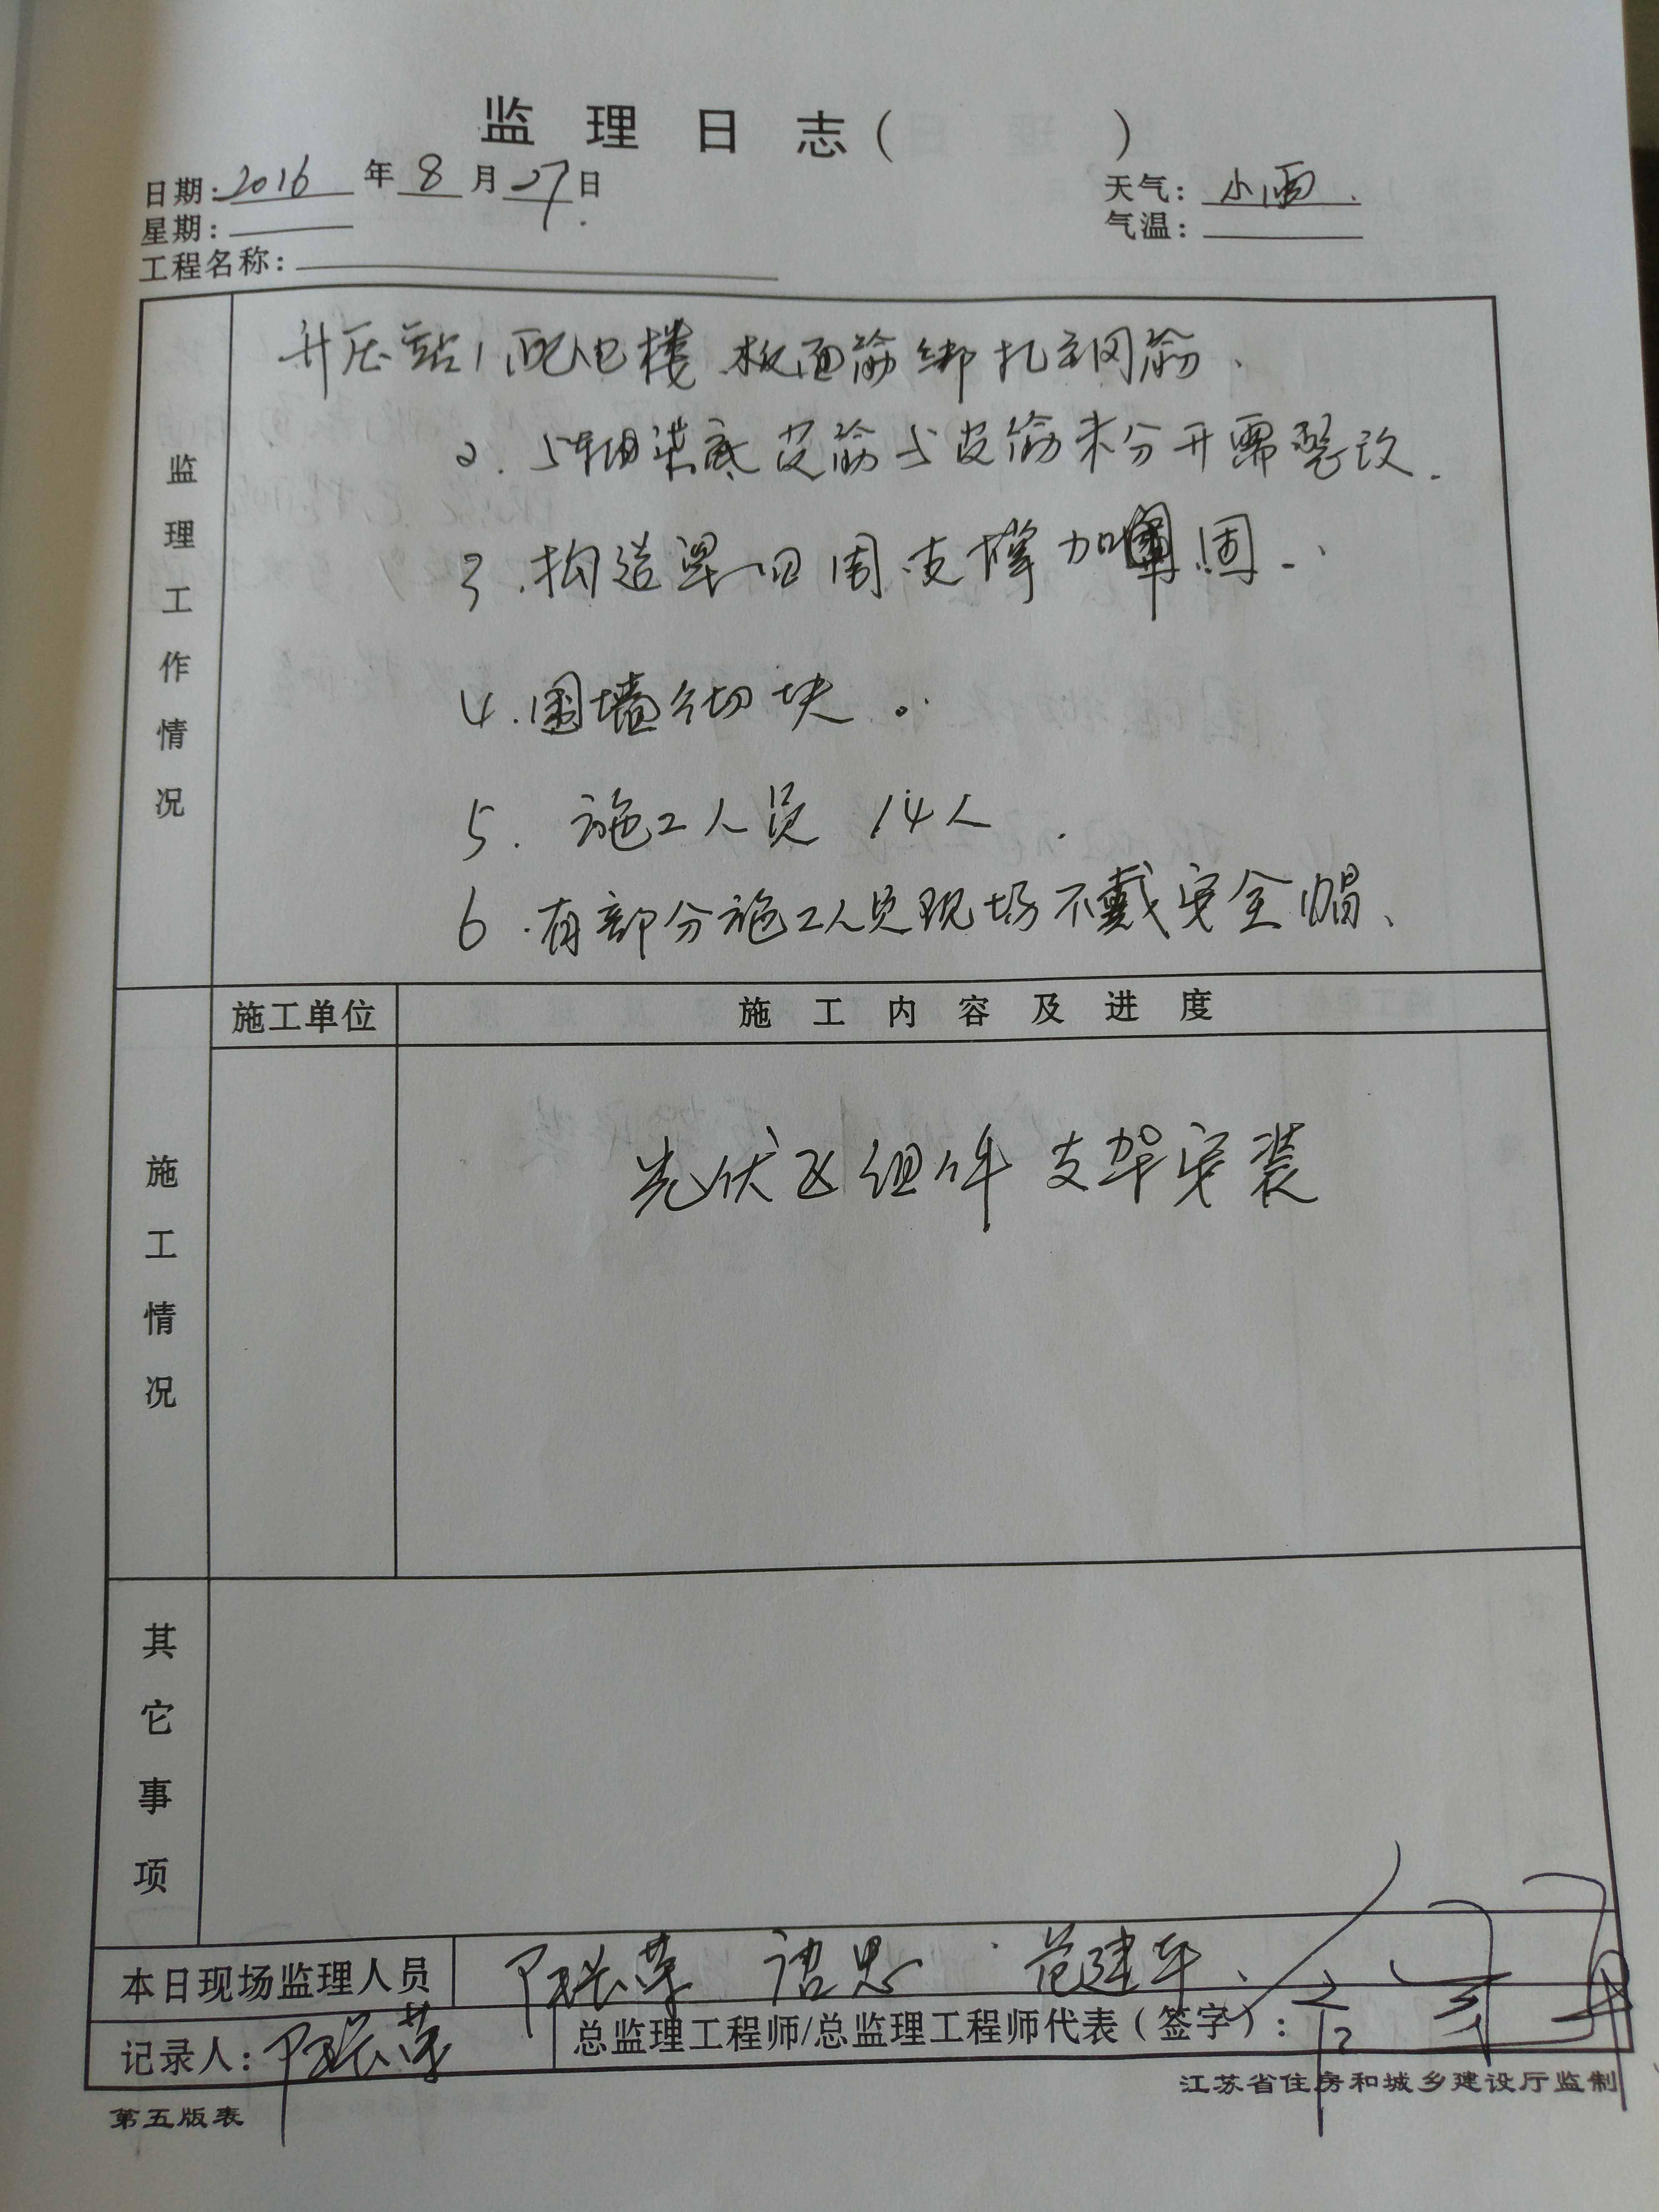 监理日志（ ）
日期：2016年8月27日
天气：小雨.
星期：
气温：
工程名称：
监理工作情况
升压站1配电楼板面筋绑扎钢筋.
2. 5轴梁底皮筋与皮筋未分开需整改.
3.构造梁四周支撑加固.
4.围墙砌块。
5. 施工人员 14人.
6.有部分施工人员现场不戴安全帽、
施工单位
施工内容及进度
施工情况
光伏区组件支架安装
其它事项
本日现场监理人员
范建华、
记录人：
总监理工程师/总监理工程师代表（签字）：
江苏省住房和城乡建设厅监制
第五版表